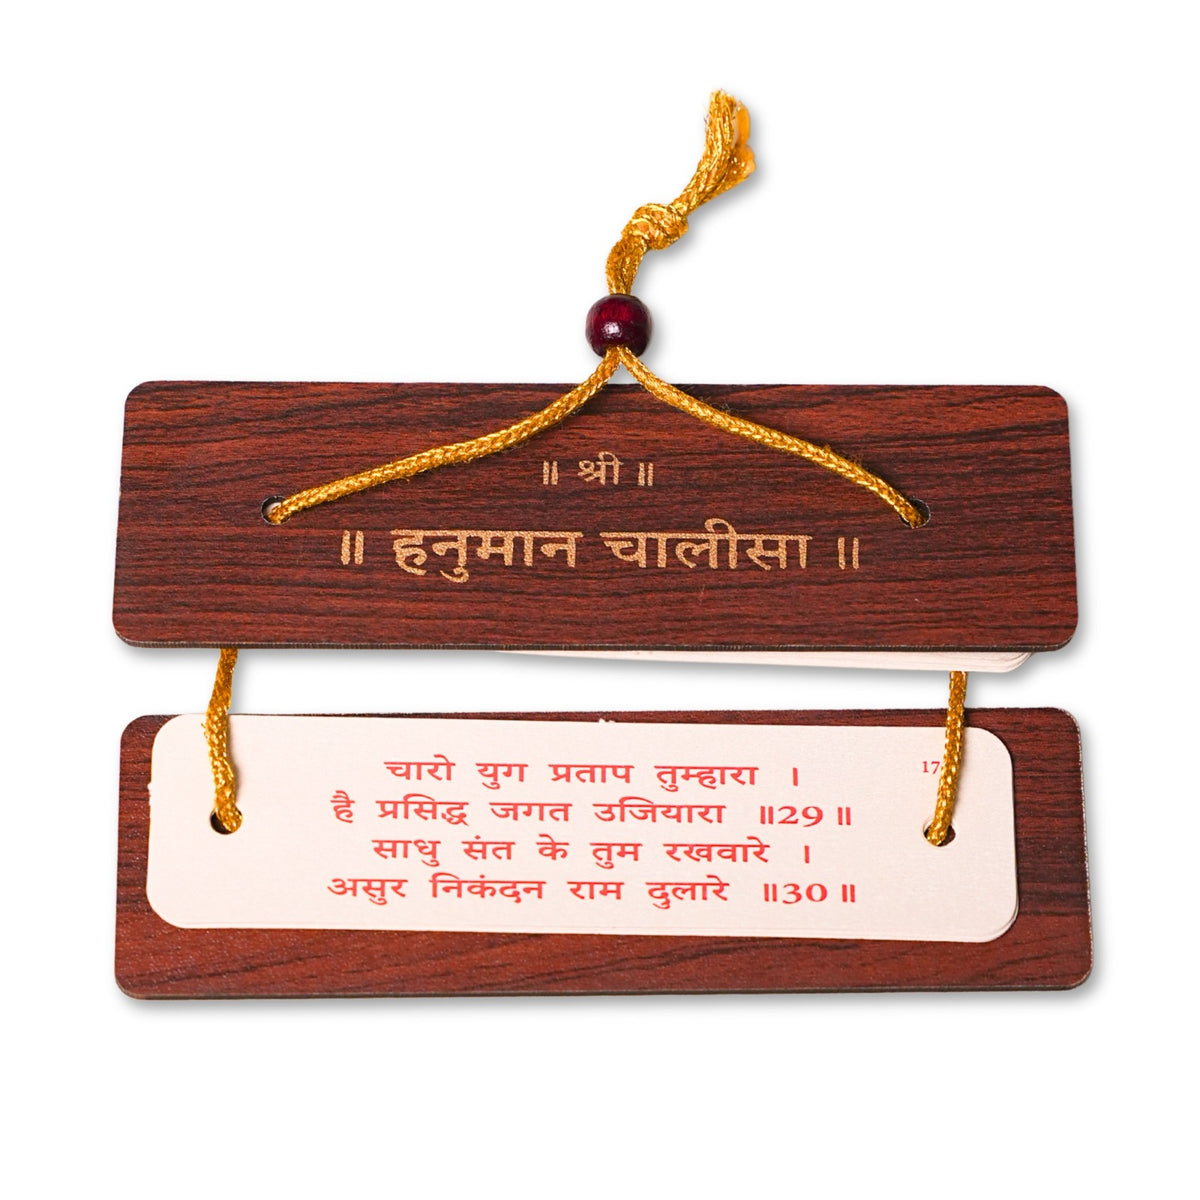 ॥ श्री ॥
॥ हनुमान चालीसा ॥
17
चारो युग प्रताप तुम्हारा ।
है प्रसिद्ध जगत उजियारा ॥29॥
साधु संत के तुम रखवारे ।
असुर निकंदन राम दुलारे ॥30॥